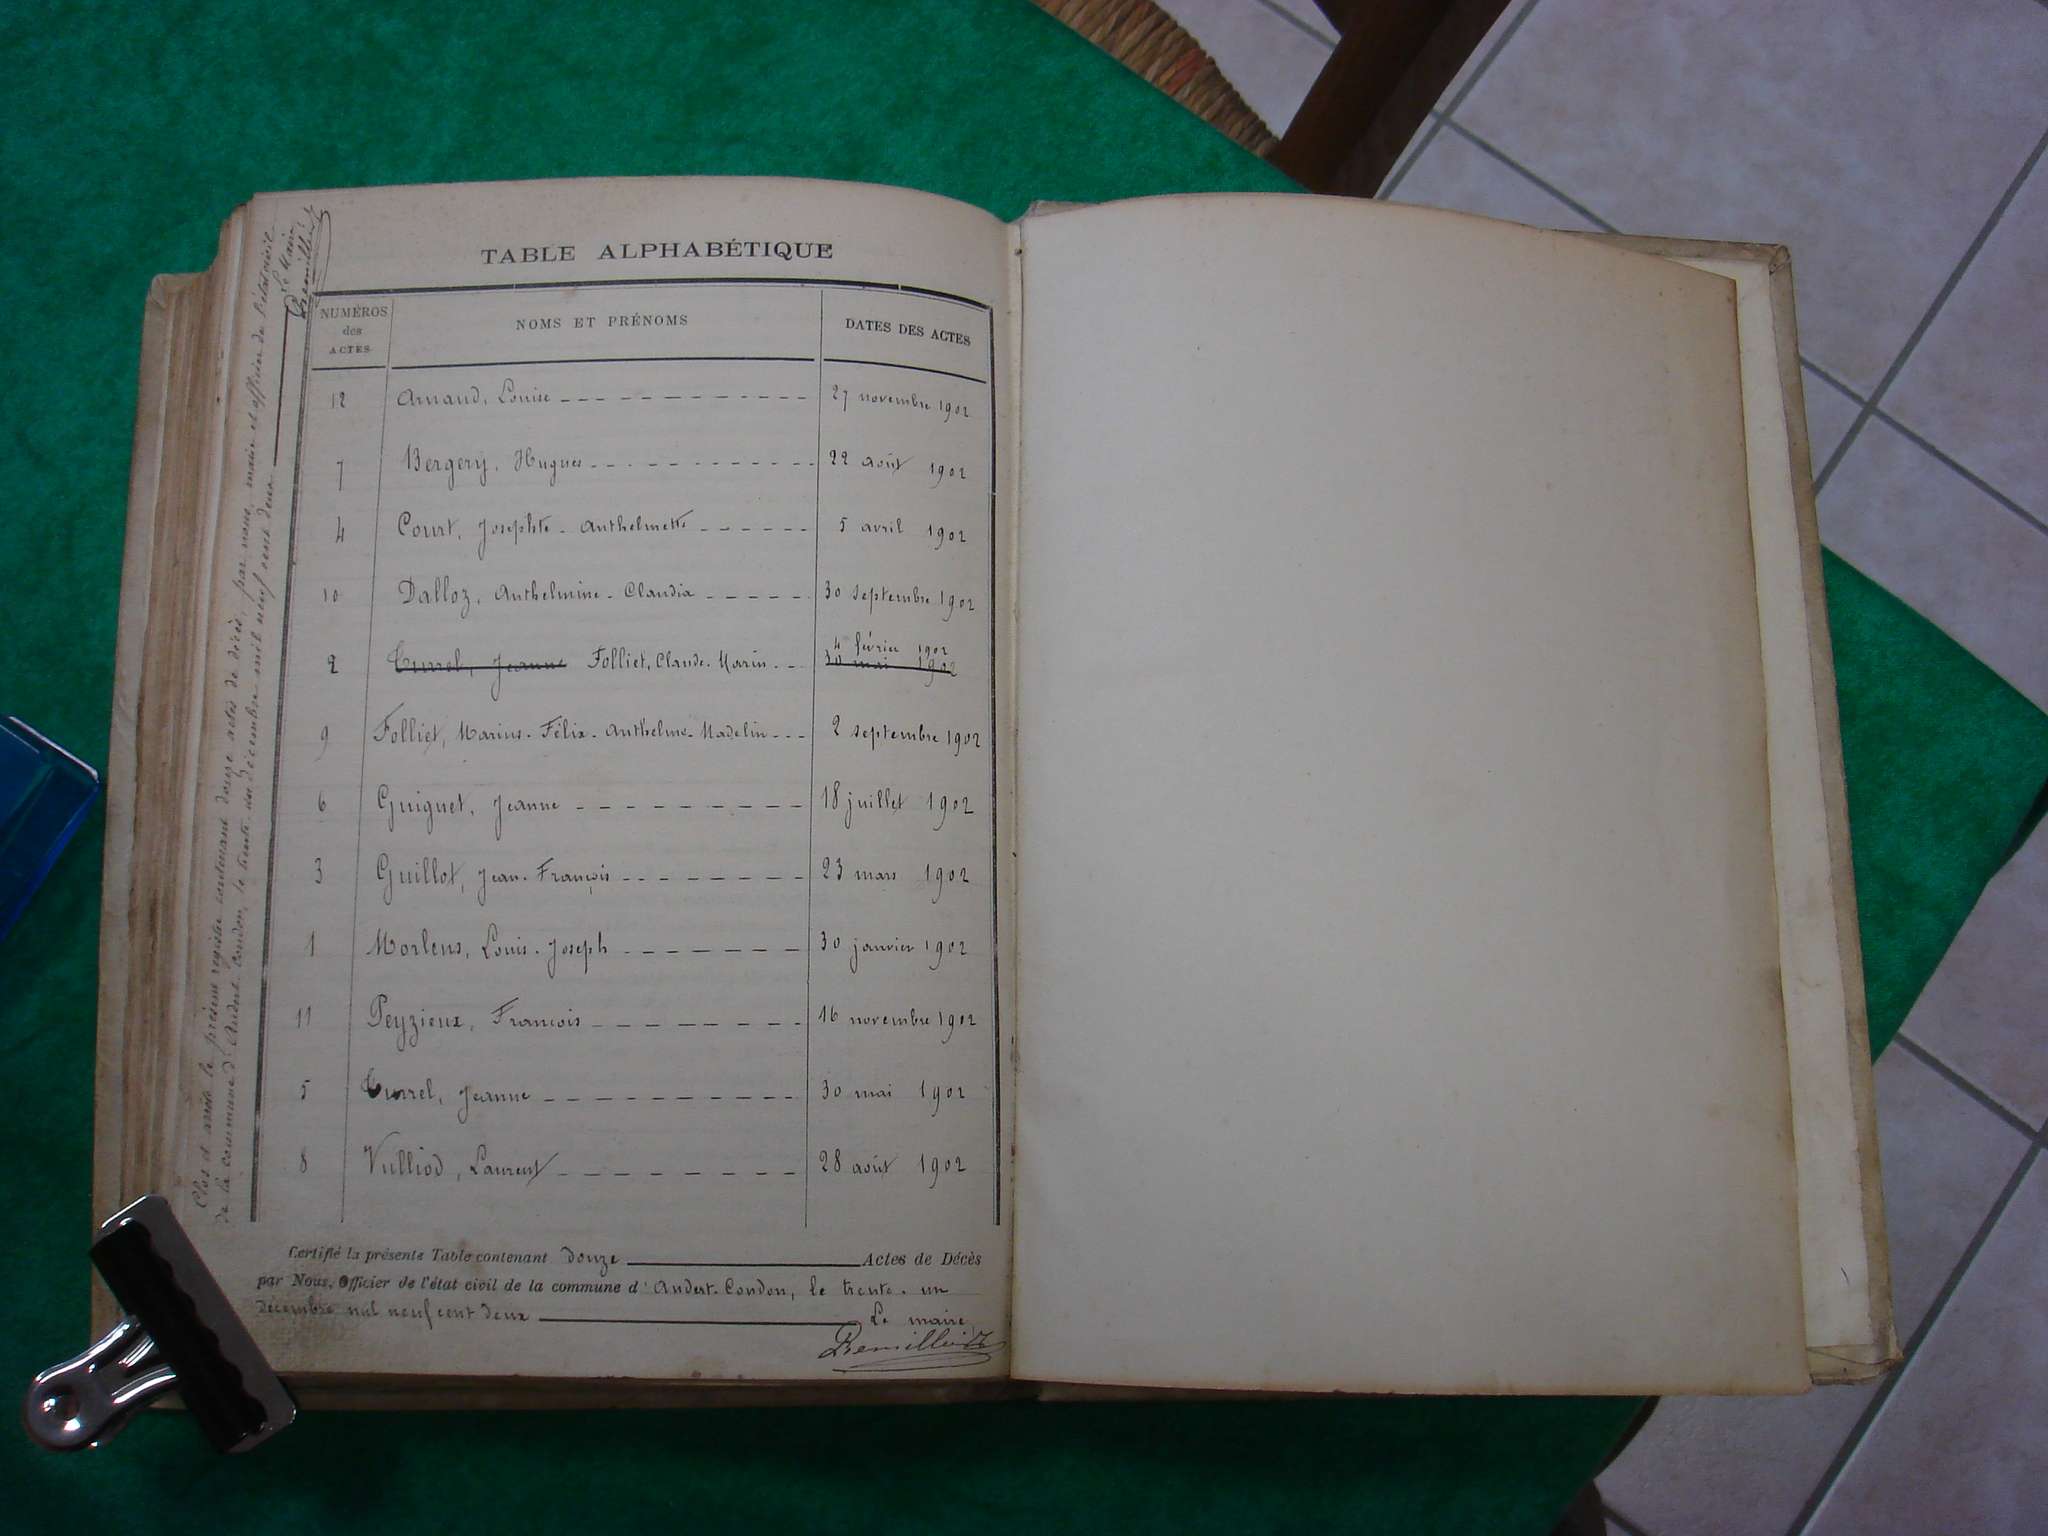 TABLE ALPHABÉTIQUE
NUMÉROS des ACTES NOMS ET PRÉNOMS DATES DES ACTES
12 Arnaud, Louise 27 novembre 1902
7 Bergery, Hugues 22 août 1902
4 Court, Josephte - Anthelmette 5 avril 1902
10 Dalloz, Anthelmine - Claudia 30 septembre 1902
4 février 1902
2 Currel, Jeanne Folliet, Claude-Marin 30 mai 1902
9 Folliet, Marius-Félix-Anthelme-Madelin 2 septembre 1902
6 Guiguet, Jeanne 18 juillet 1902
3 Guillot, Jean-François 23 mars 1902
1 Morlens, Louis-Joseph 30 janvier 1902
11 Peyzieux, François 16 novembre 1902
5 Currel, Jeanne 30 mai 1902
8 Vulliod, Laurent 28 août 1902
Certifié la présente Table contenant douze Actes de Décès
par Nous, Officier de l'état civil de la commune d'Andert-Condon, le trente-un
décembre mil neuf cent deux Le maire,
Clos et arrêté le présent registre contenant douze actes de décès, par nous, maire et officier de l'état civil
de la commune d'Andert-Condon, le trente-un décembre mil neuf cent deux
Le Maire